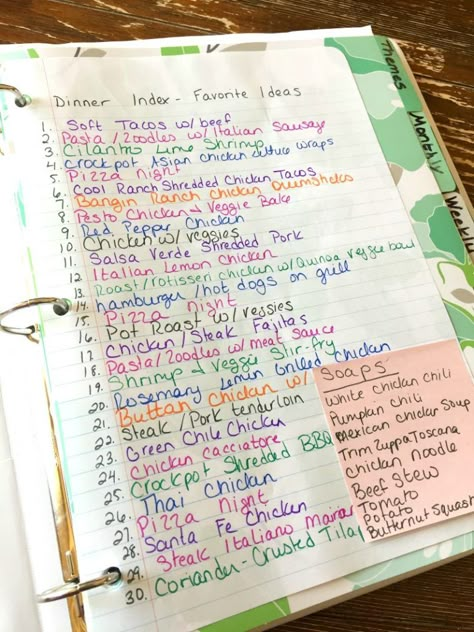 Dinner Index - Favorite Ideas
1. Soft Tacos w/ beef
2. Pasta/Zoodles w/ Italian Sausage
3. Cilantro Lime Shrimp
4. Crockpot Asian chicken lettuce wraps
5. Pizza Night
6. Cool Ranch Shredded Chicken Tacos
7. Bangin Ranch Chicken Drumsticks
8. Pesto Chicken & Veggie Bake
9. Red Pepper Chicken
10. Chicken w/ veggies
11. Salsa Verde Shredded Pork
12. Italian Lemon Chicken
13. Roast/rotisseri chicken w/ Quinoa veggie bowl
14. hamburger/hot dogs on grill
15. Pizza night
16. Pot Roast w/ veggies
17. Chicken/Steak Fajitas
18. Pasta/Zoodles w/ meat sauce
19. Shrimp & Veggie Stir-fry
20. Rosemary Lemon Grilled Chicken
21. Chicken w/
22. Steak/Pork tenderloin
23. Green Chile Chicken
24. Chicken cacciatore
25. Crockpot Shredded BBQ
26. Thai Chicken
27. Pizza Night
28. Santa Fe Chicken
29. Steak Italiano
30. Coriander-Crusted
Soaps
White chicken chili
Pumpkin chili
Mexican chicken Soup
Trim Zuppa Toscana
chicken noodle
Beef Stew
Tomato
Potato
Butternut Squash
Themes
Monthly